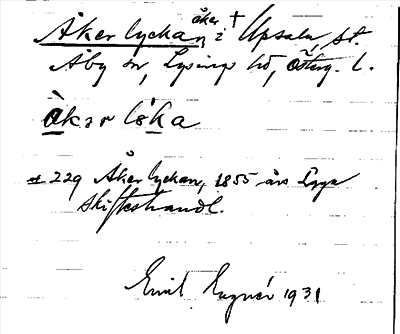 Åkerlyckan, åker † i Upsala, st.
Åby sn, Lysings hd, Östg. l.
òkərlo̊ka
* 229 Åkerlyckan, 1855 års Laga
skifteshandl.
Emil Eugnér 1931